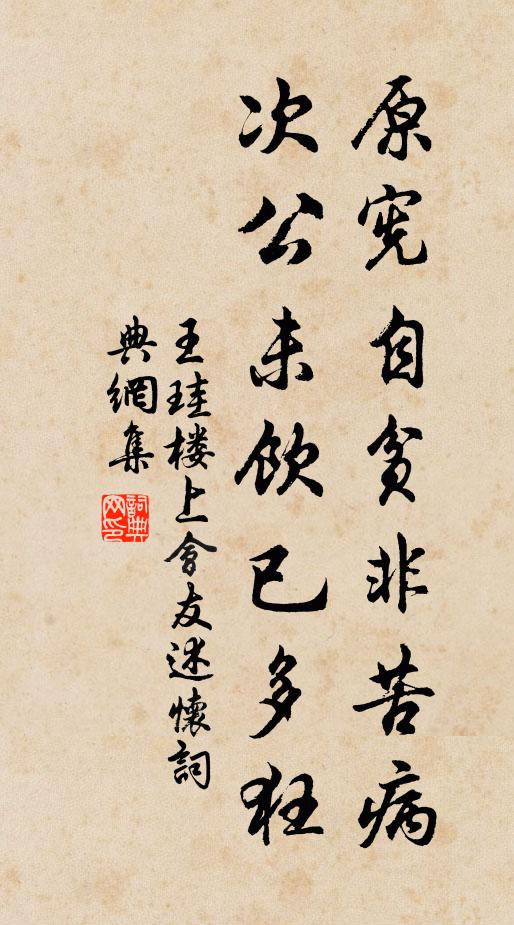 原宪自贫非苦病
次公未饮已多狂
王珪楼上會友述懷詞
典網集
詞典网印